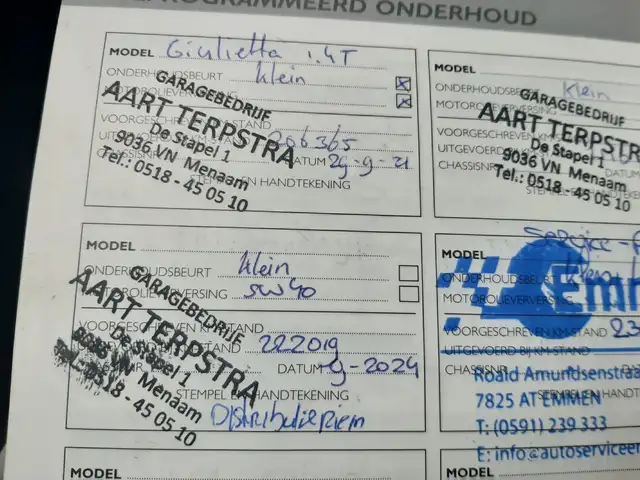 PROGRAMMEERD ONDERHOUD
MODEL Giulietta 1.4T
ONDERHOUDSBEURT klein
GARAGEBEDRIJF
AART TERPSTRA
De Stapel 1
9036 VN Menaam
Tel.: 0518 - 45 05 10
206365
DATUM 29-9-21
CHASSISNR
STEMPEL EN HANDTEKENING
MODEL
ONDERHOUDSBEURT klein
MOTOROLIEVERVERSING
GARAGEBEDRIJF
AART TERPSTRA
De Stapel 1
9036 VN Menaam
Tel.: 0518 - 45 05 10
VOORGESCHREVEN KM-STAND
CHASSISNR
STEMPEL EN HANDTEKENING
MODEL
ONDERHOUDSBEURT klein
MOTOROLIEVERVERSING 5W40
GARAGEBEDRIJF
AART TERPSTRA
De Stapel 1
9036 VN Menaam
0518 - 45 05 10
VOORGESCHREVEN KM-STAND
222019
DATUM 9-2024
STEMPEL EN HANDTEKENING
Distributieriem
MODEL
Emm
ONDERHOUDSBEURT
MOTOROLIEVERVERSING
VOORGESCHREVEN KM-STAND 23
UITGEVOERD BIJ KM-STAND
CHASSISNR
Roald Amundsenstraa
7825 AT EMMEN
T: (0591) 239 333
E: info@autoserviceem
MODEL
MODEL